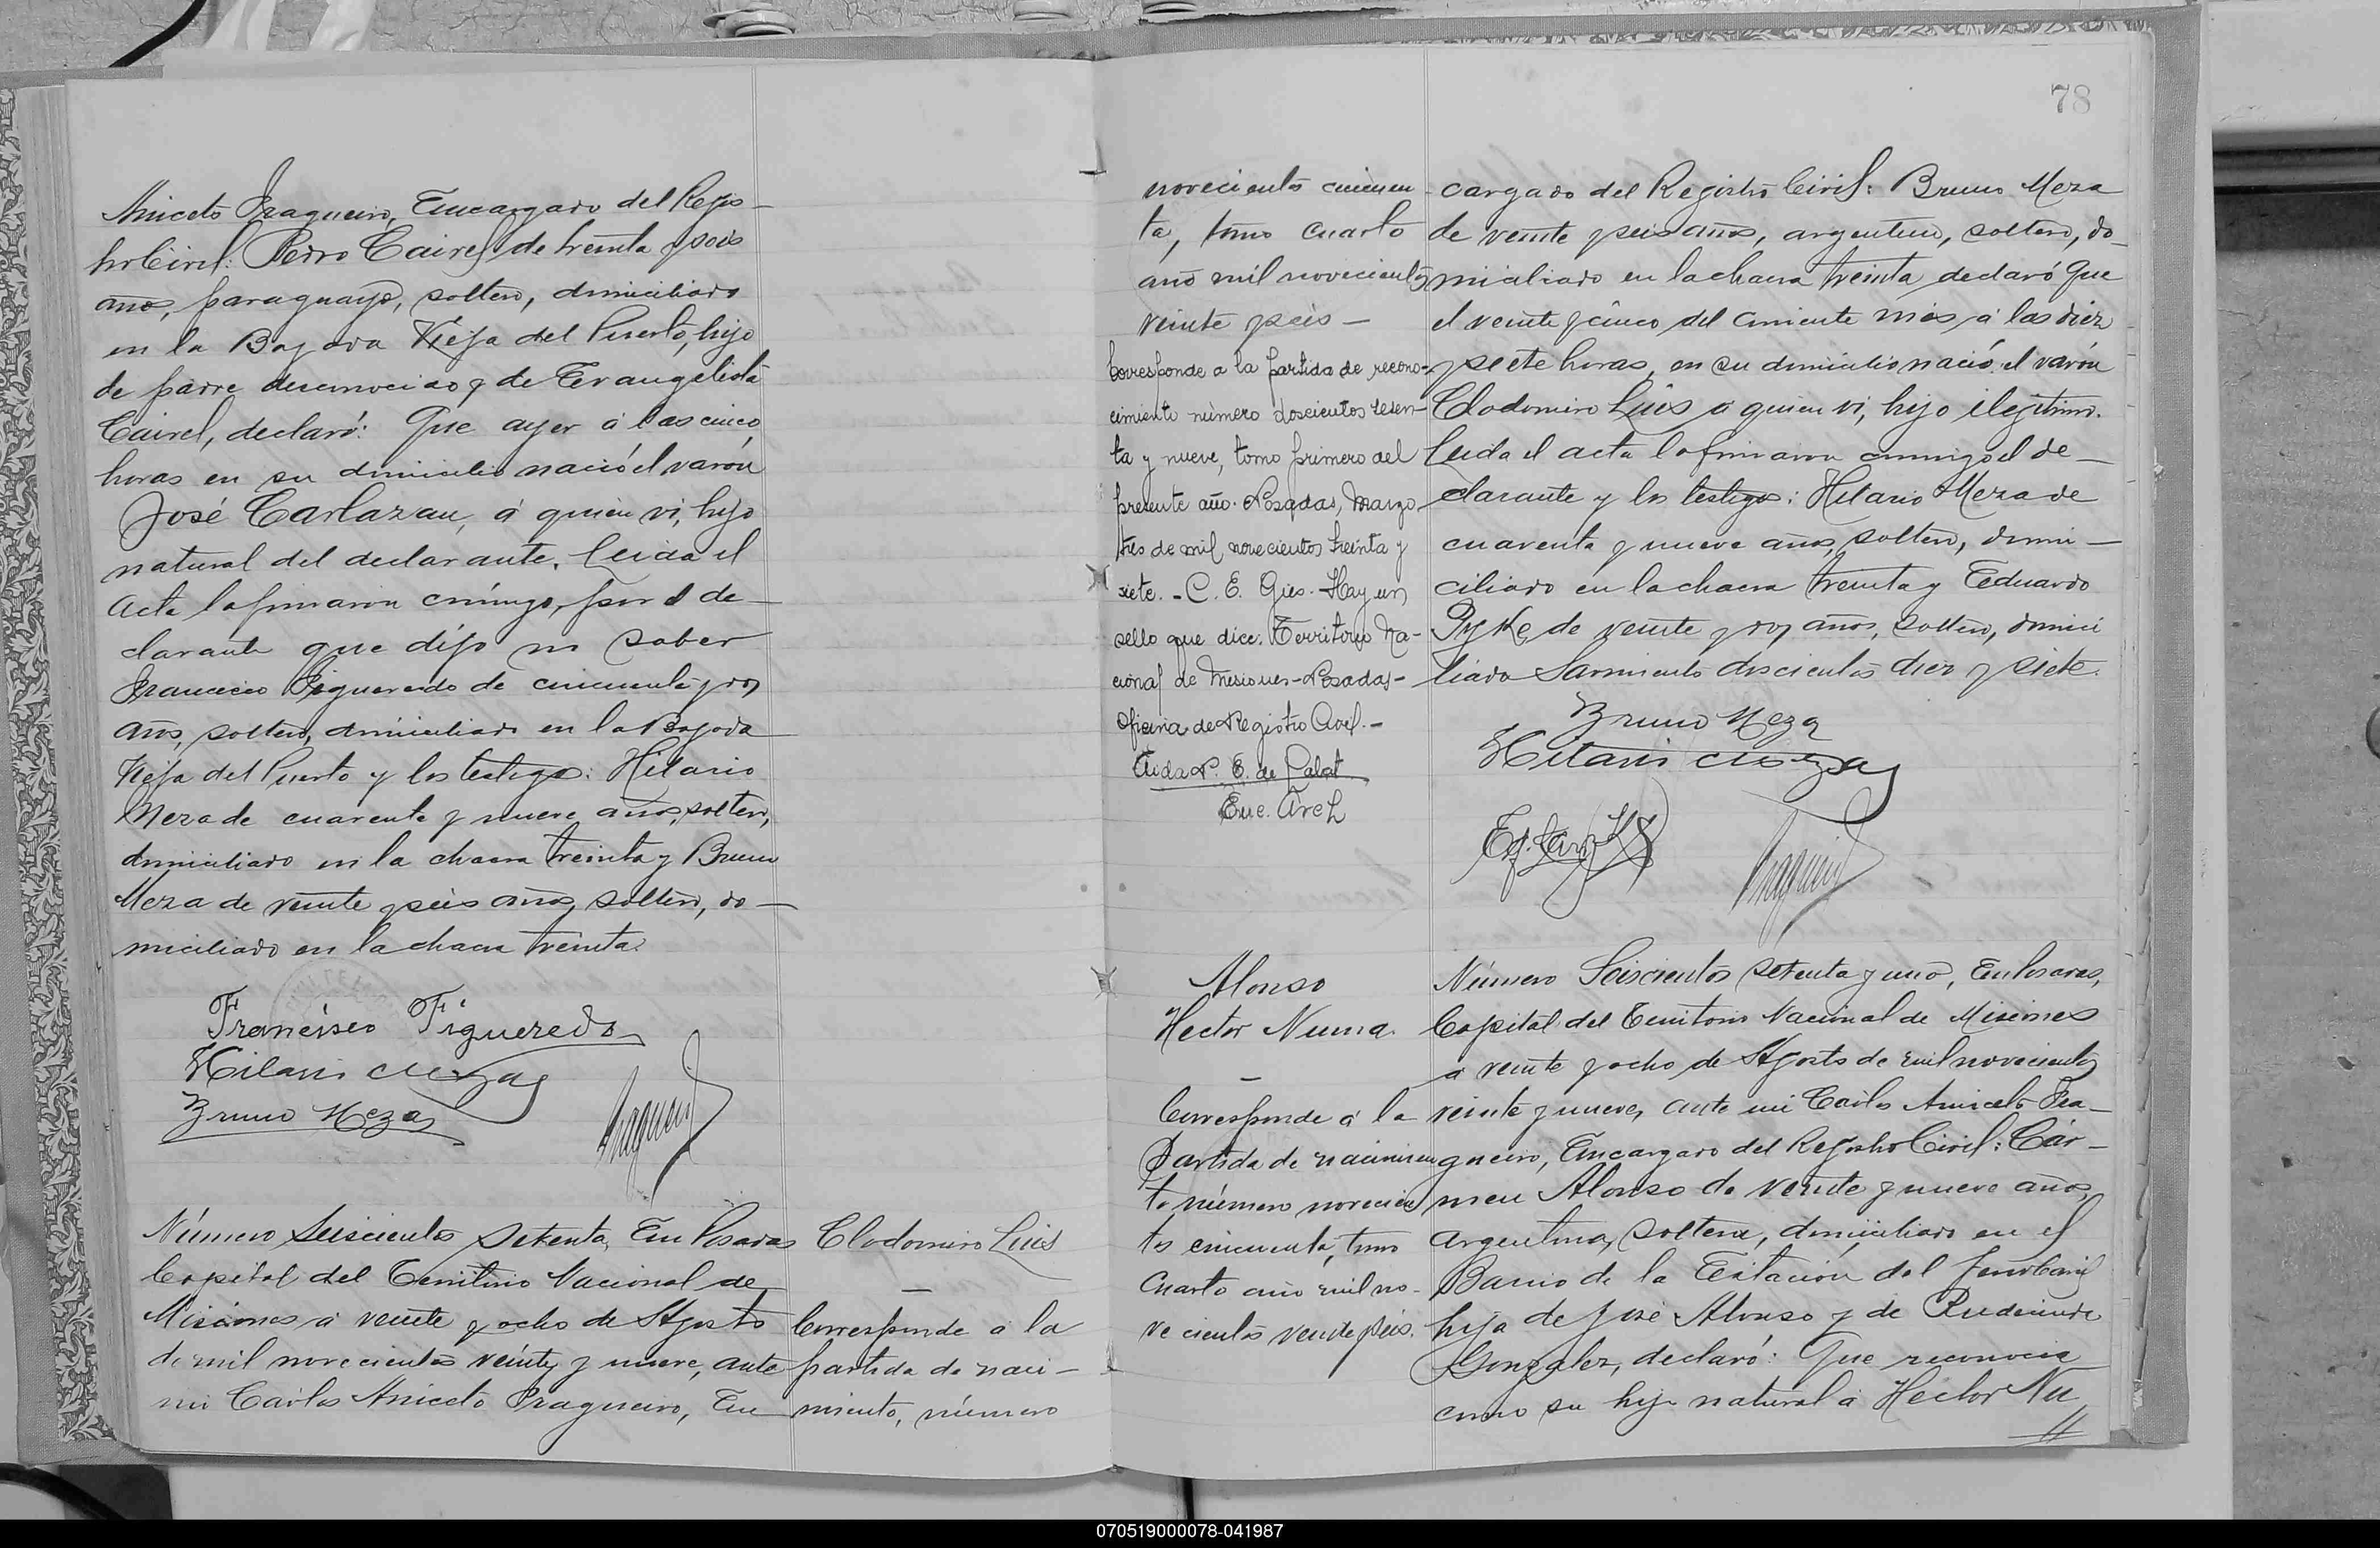 Aniceto Fragueiro, Encargado del Regis-
tro Civil: Pedro Cairel de treinta y seis
años, paraguayo, soltero, domiciliado
en la Bajada Vieja del Puerto, hijo
de padre desconocido y de Evangelista
Cairel, declaró: Que ayer á las cinco
horas en su domicilio nació el varón
José Carlazan, á quien vi, hijo
natural del declarante. Leida el
acta la firmaron conmigo, por el de-
clarante que dijo no saber
Francisco Figueredo de cincuenta y dos
años, soltero, domiciliado en la Bajada
Vieja del Puerto y los testigos: Hilario
Meza de cuarenta y nueve años, soltero,
domiciliado en la chacra treinta y Bruno
Meza de veinte y seis años, soltero, do-
miciliado en la chacra treinta.
Francisco Figueredo
Hilario Meza
Bruno Meza
Fragueiro
Número Seiscientos setenta, En Posadas
Capital del Territorio Nacional de
Misiones á veinte y ocho de Agosto
de mil novecientos veinte y nueve, ante
mi Carlos Aniceto Fragueiro, En
Clodomiro Luis
Corresponde á la
partida de naci-
miento, número
78
novecientos cincuen
ta, tomo cuarto
año mil novecientos
veinte y seis —
Corresponde a la partida de recono-
cimiento número doscientos sesen-
ta y nueve, tomo primero del
presente año. Posadas, Marzo
tres de mil novecientos treinta y
siete. - C. E. Gies. - Hay un
sello que dice: Territorio Na-
cional de Misiones - Posadas -
Oficina de Registro Civil. -
E. de
Enc. Arch
cargado del Registro Civil: Bruno Meza
de veinte y seis años, argentino, soltero, do-
miciliado en la chacra treinta declaró Que
el veinte y cinco del corriente mes á las diez
y siete horas, en su domicilio nació el varón
Clodomiro Luis á quien vi, hijo ilegítimo.
Leida el acta la firmaron conmigo el de-
clarante y los testigos: Hilario Meza de
cuarenta y nueve años, soltero, domi-
ciliado en la chacra treinta y Eduardo
de veinte y dos años, soltero, domici
liado Sarmiento doscientos diez y siete.
Bruno Meza
Hilario Meza
Fragueiro
Alonso
Hector Numa.
Corresponde á la
Partida de nacimien
to número novecien
tos cincuenta, tomo
cuarto año mil no-
vecientos veinte y seis.
Número Seiscientos setenta y uno, En Posadas,
Capital del Territorio Nacional de Misiones
á veinte y ocho de Agosto de mil novecientos
veinte y nueve, ante mi Carlos Aniceto Fra-
gueiro, Encargado del Registro Civil: Cár-
men Alonso de veinte y nueve años,
argentina, soltera, domiciliado en el
Barrio de la Estación del ferrocarril
hija de José Alonso y de Rudecinda
Gonzalez, declaró: Que reconocia
como su hijo natural á Hector Nu
//
070519000078-041987